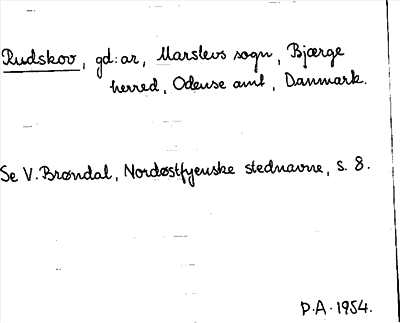 Rudskov, gd:ar, Marslevs sogn, Bjærge
herred, Odense amt, Danmark.
Se V. Brøndal, Nordøstfyenske stednavne, s. 8.
P.A. 1954.